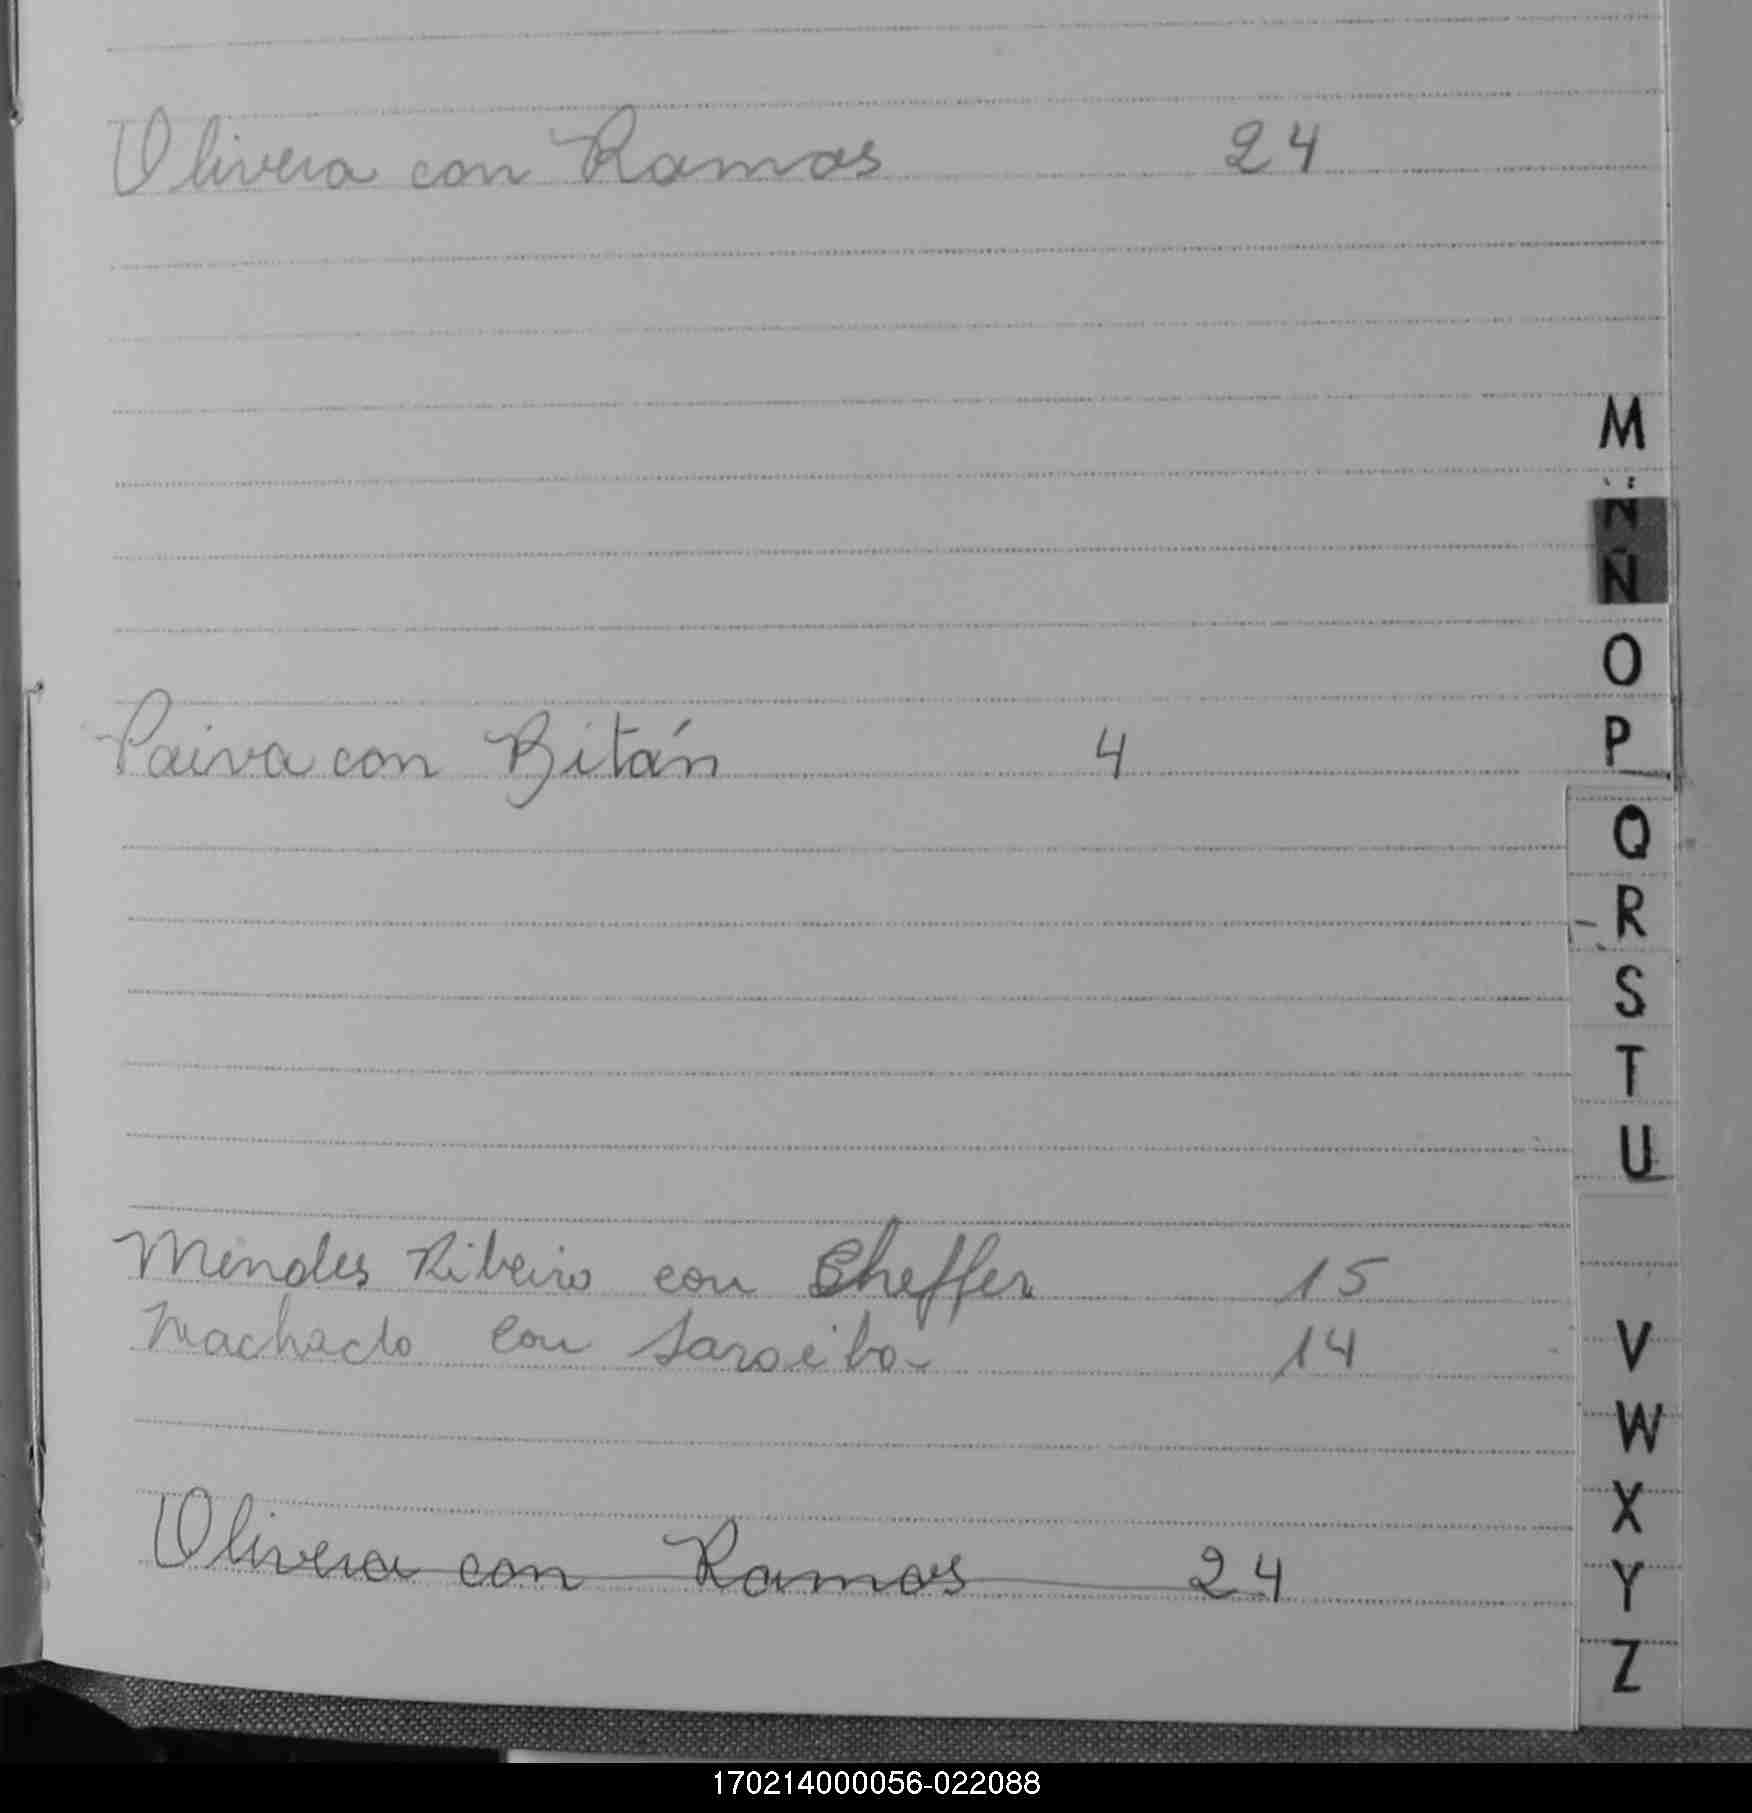 Olivera con Ramos 24
M
N
Ñ
O
Paiva con Bitán 4
P
Q
R
S
T
U
Mendes Ribeiro con Sheffer 15
Machado con Saraiba 14
V
W
X
Olivera con Ramos 24
Y
Z
170214000056-022088